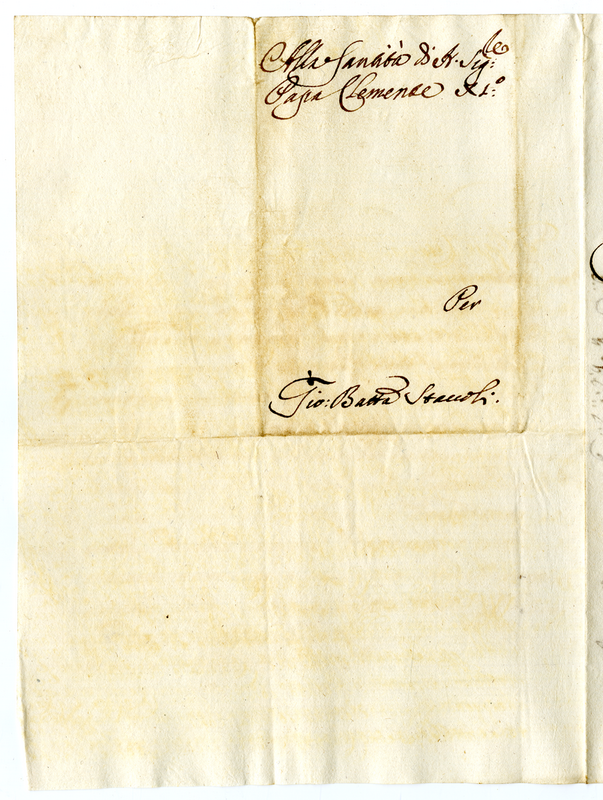 Alla Santità di N. Sig.re
Papa Clemente XI.º
Per
Gio: Batta Staccoli.